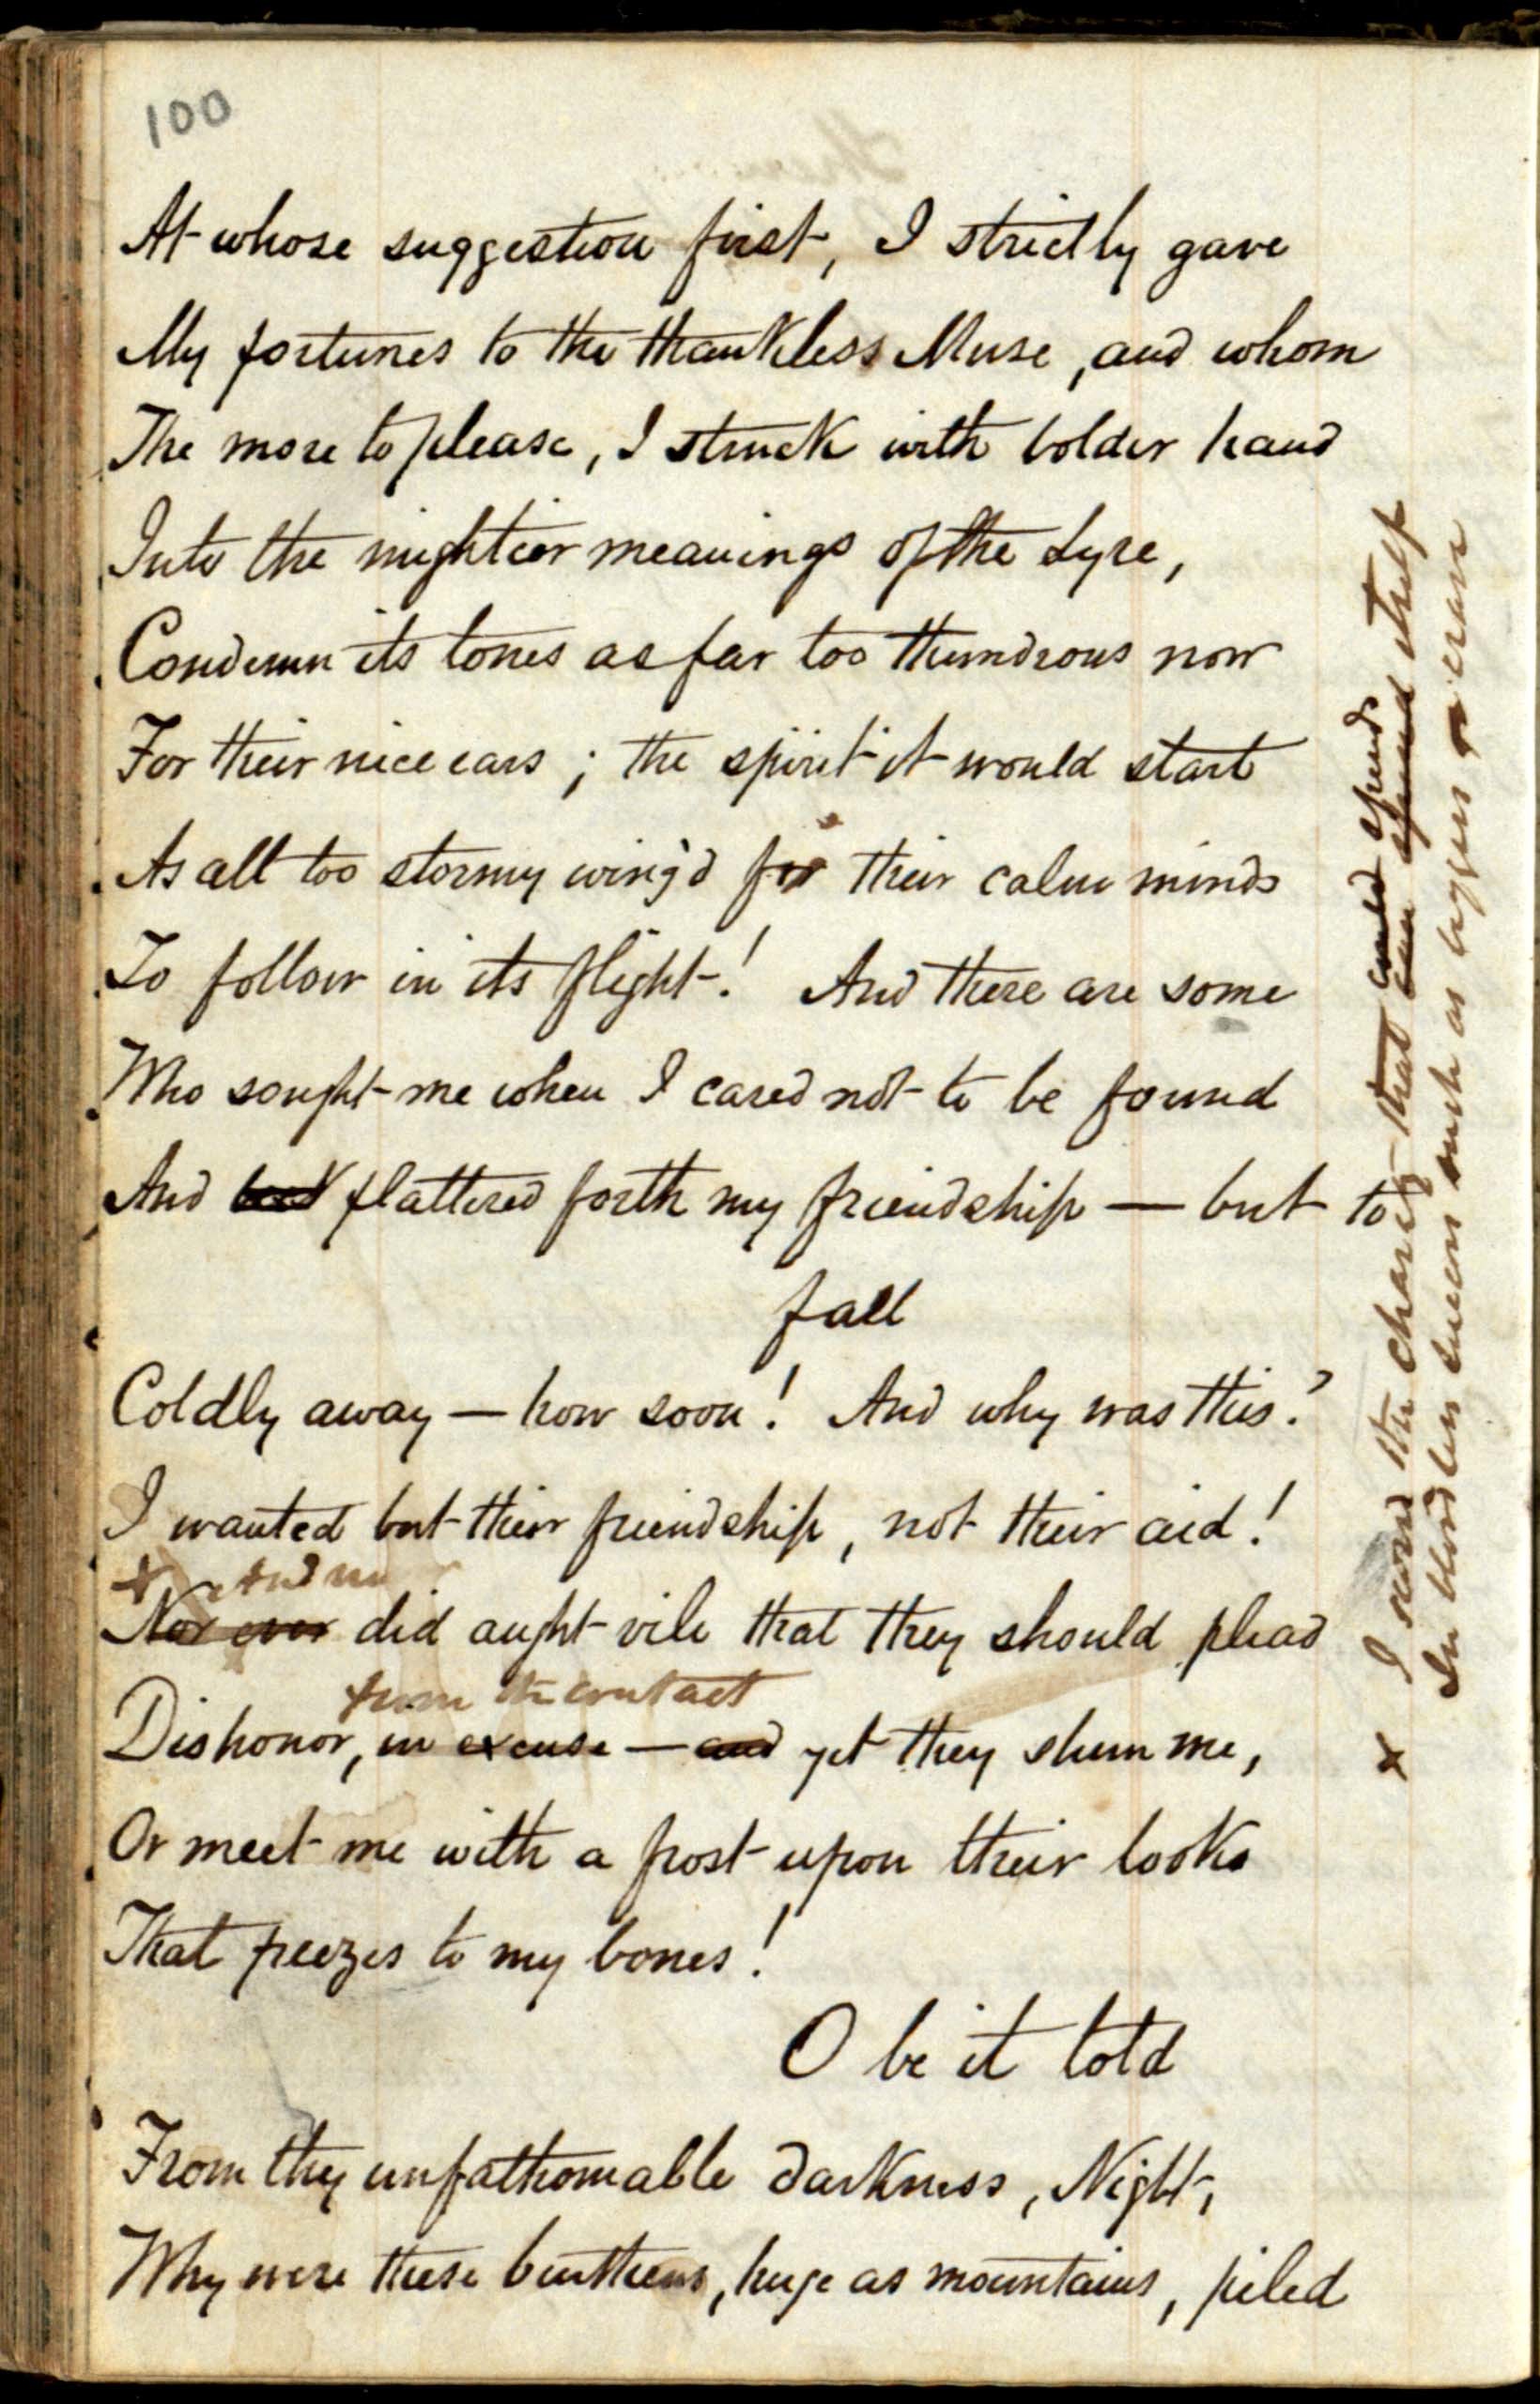 100
At whose suggestion first, I strictly gave
My fortunes to the thankless Muse, and whom
The more to please, I struck with bolder hand
Into the mightier meanings of the Lyre,
Condemn its tones as far too thundrous now
For their nice ears; the spirit it would start
As all too stormy wing'd for their calm minds
To follow in its flight! And there are some
Who sought me when I cared not to be found
And flattered forth my friendship — but to
fall
Coldly away — how soon! And why was this?
I wanted but their friendship, not their aid!
x And
Nor ever did aught vile that they should plead
from the contact
Dishonor, in excuse — and yet they shun me,
Or meet me with a frost upon their looks
That freezes to my bones!
O be it told
From thy unfathomable darkness, Night,
Why were these burthens, huge as mountains, piled
could spends
x I scorned the charity that can spend itself
In bloodless such as